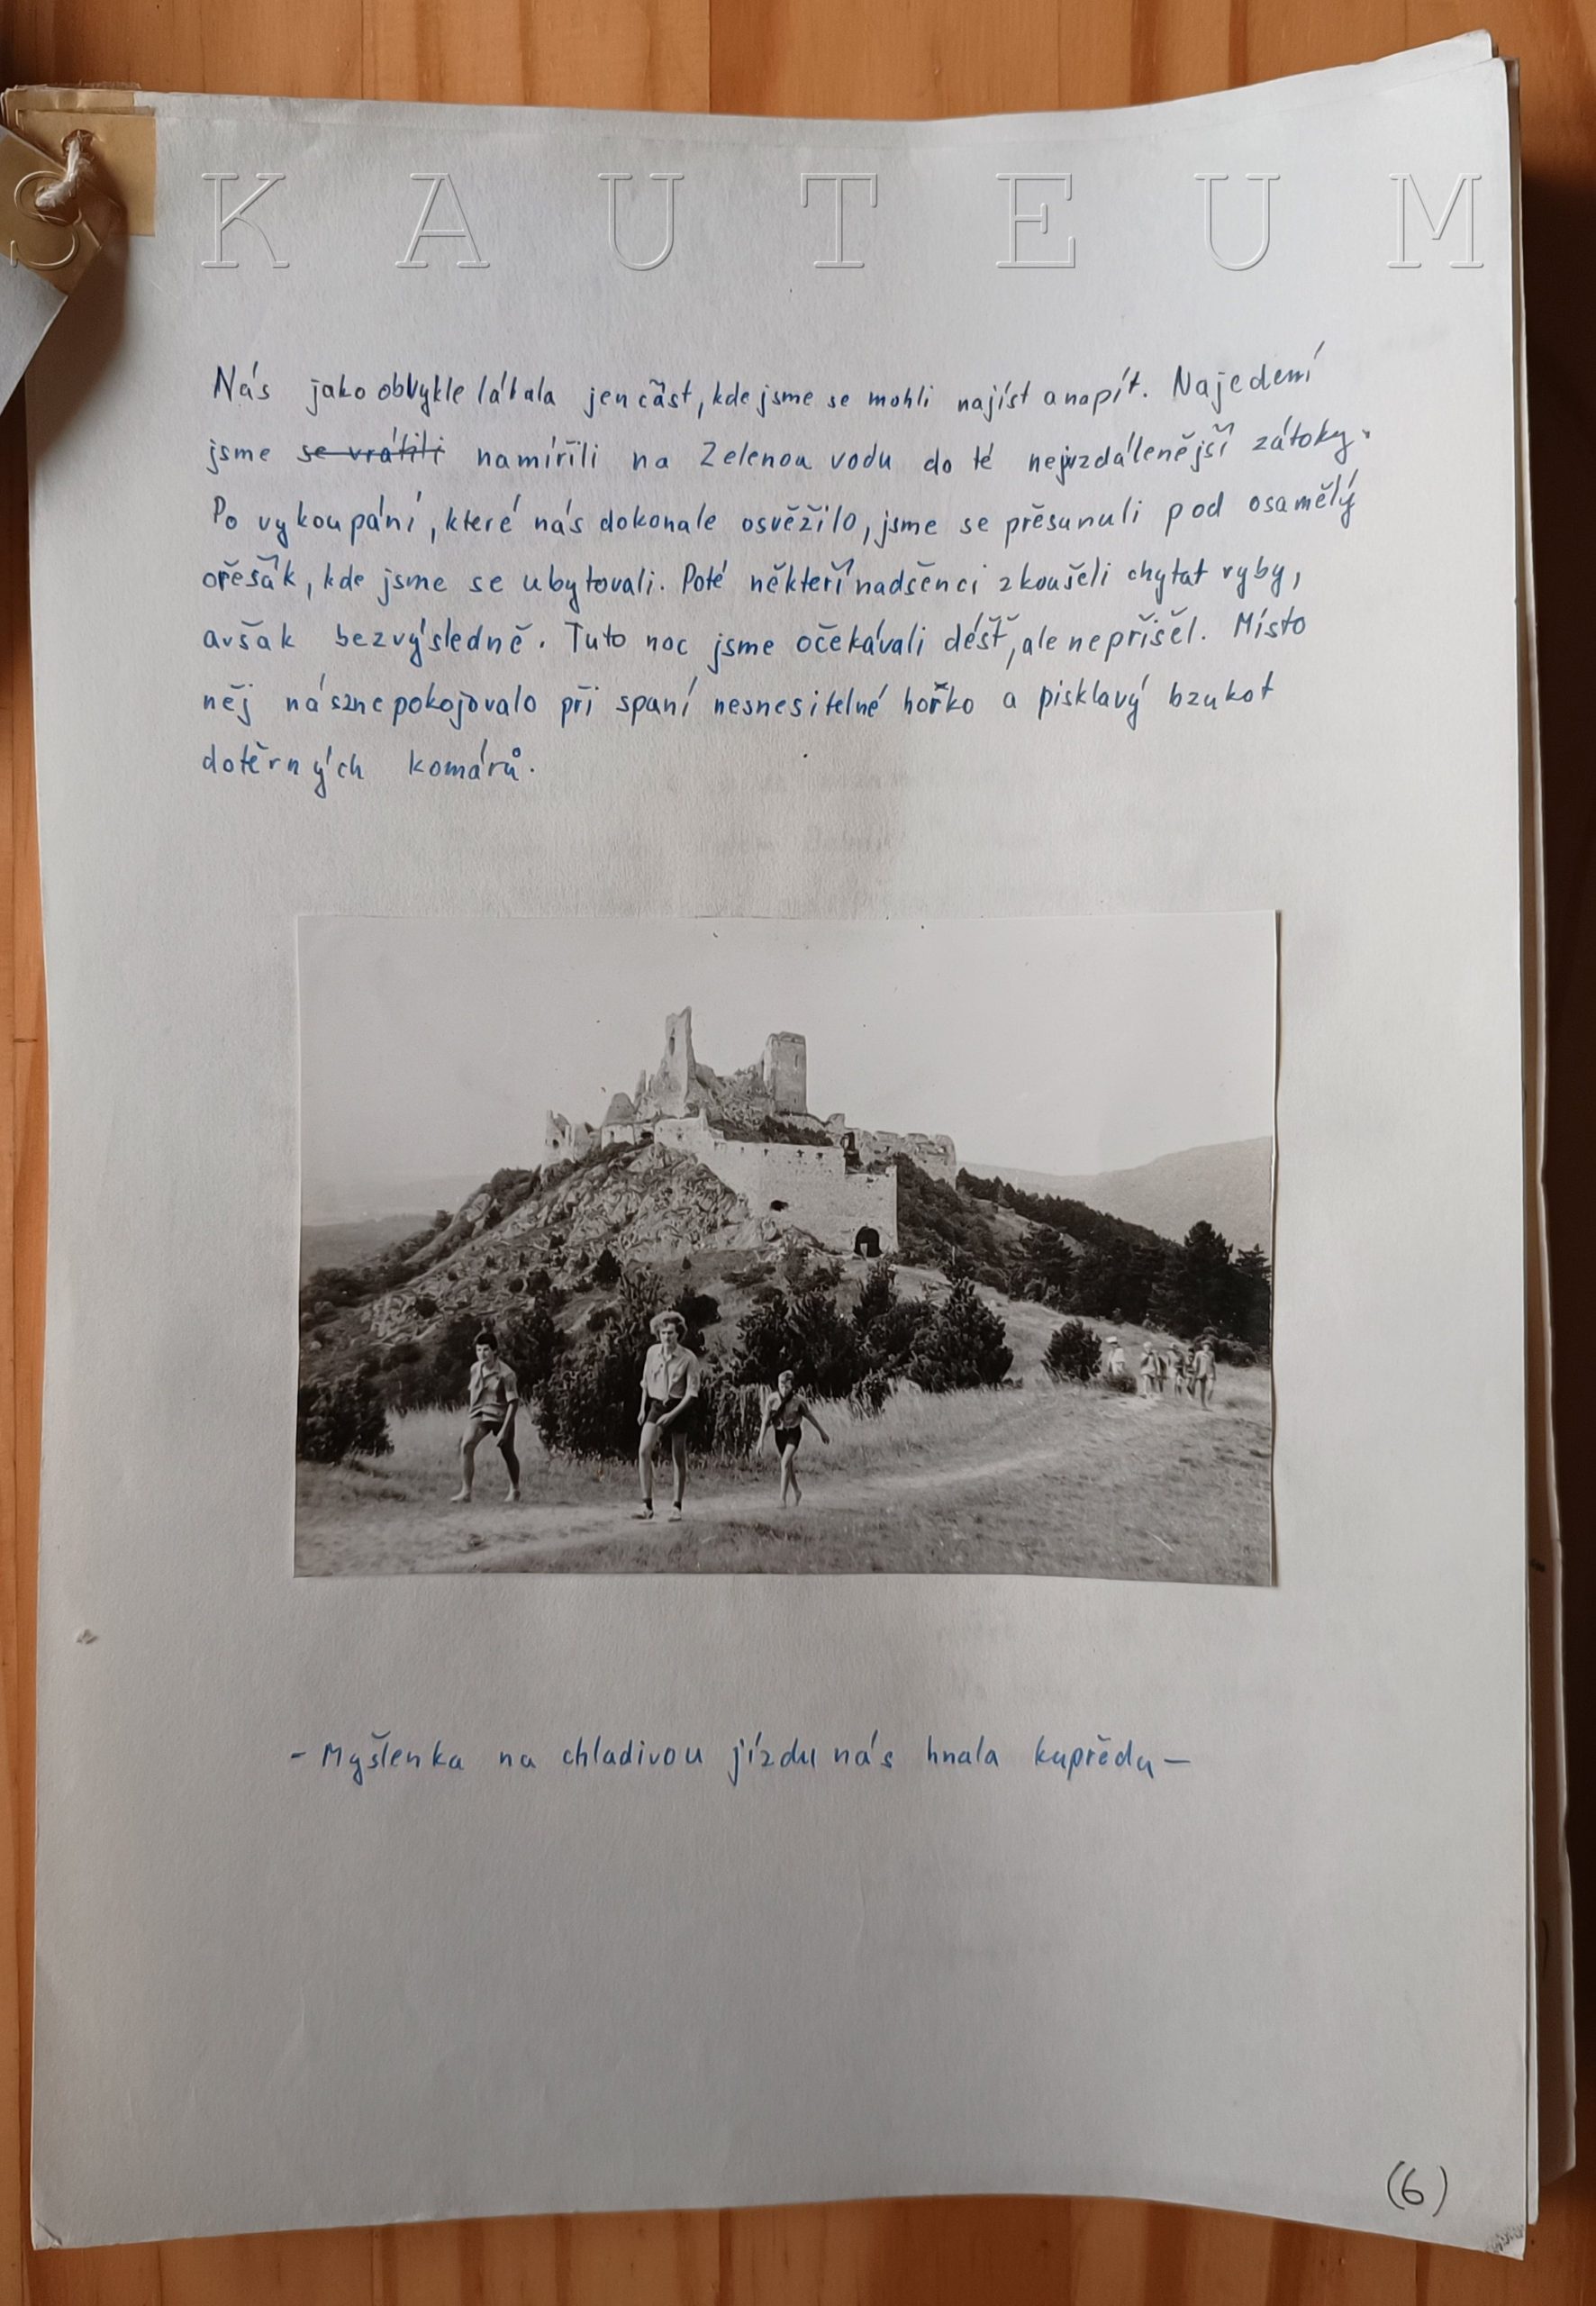 SKAUTEUM
Nás jako obvykle lákala jen část, kde jsme se mohli najíst a napít. Najedení
jsme se vrátili namířili na Zelenou vodu do té nejvzdálenější zátoky.
Po vykoupání, které nás dokonale osvěžilo, jsme se přesunuli pod osamělý
ořešák, kde jsme se ubytovali. Poté někteří nadšenci zkoušeli chytat ryby,
avšak bezvýsledně. Tuto noc jsme očekávali déšť, ale nepřišel. Místo
něj nás znepokojovalo při spaní nesnesitelné horko a pisklavý bzukot
dotěrných komárů.
- Myšlenka na chladivou jízdu nás hnala kupředu -
(6)